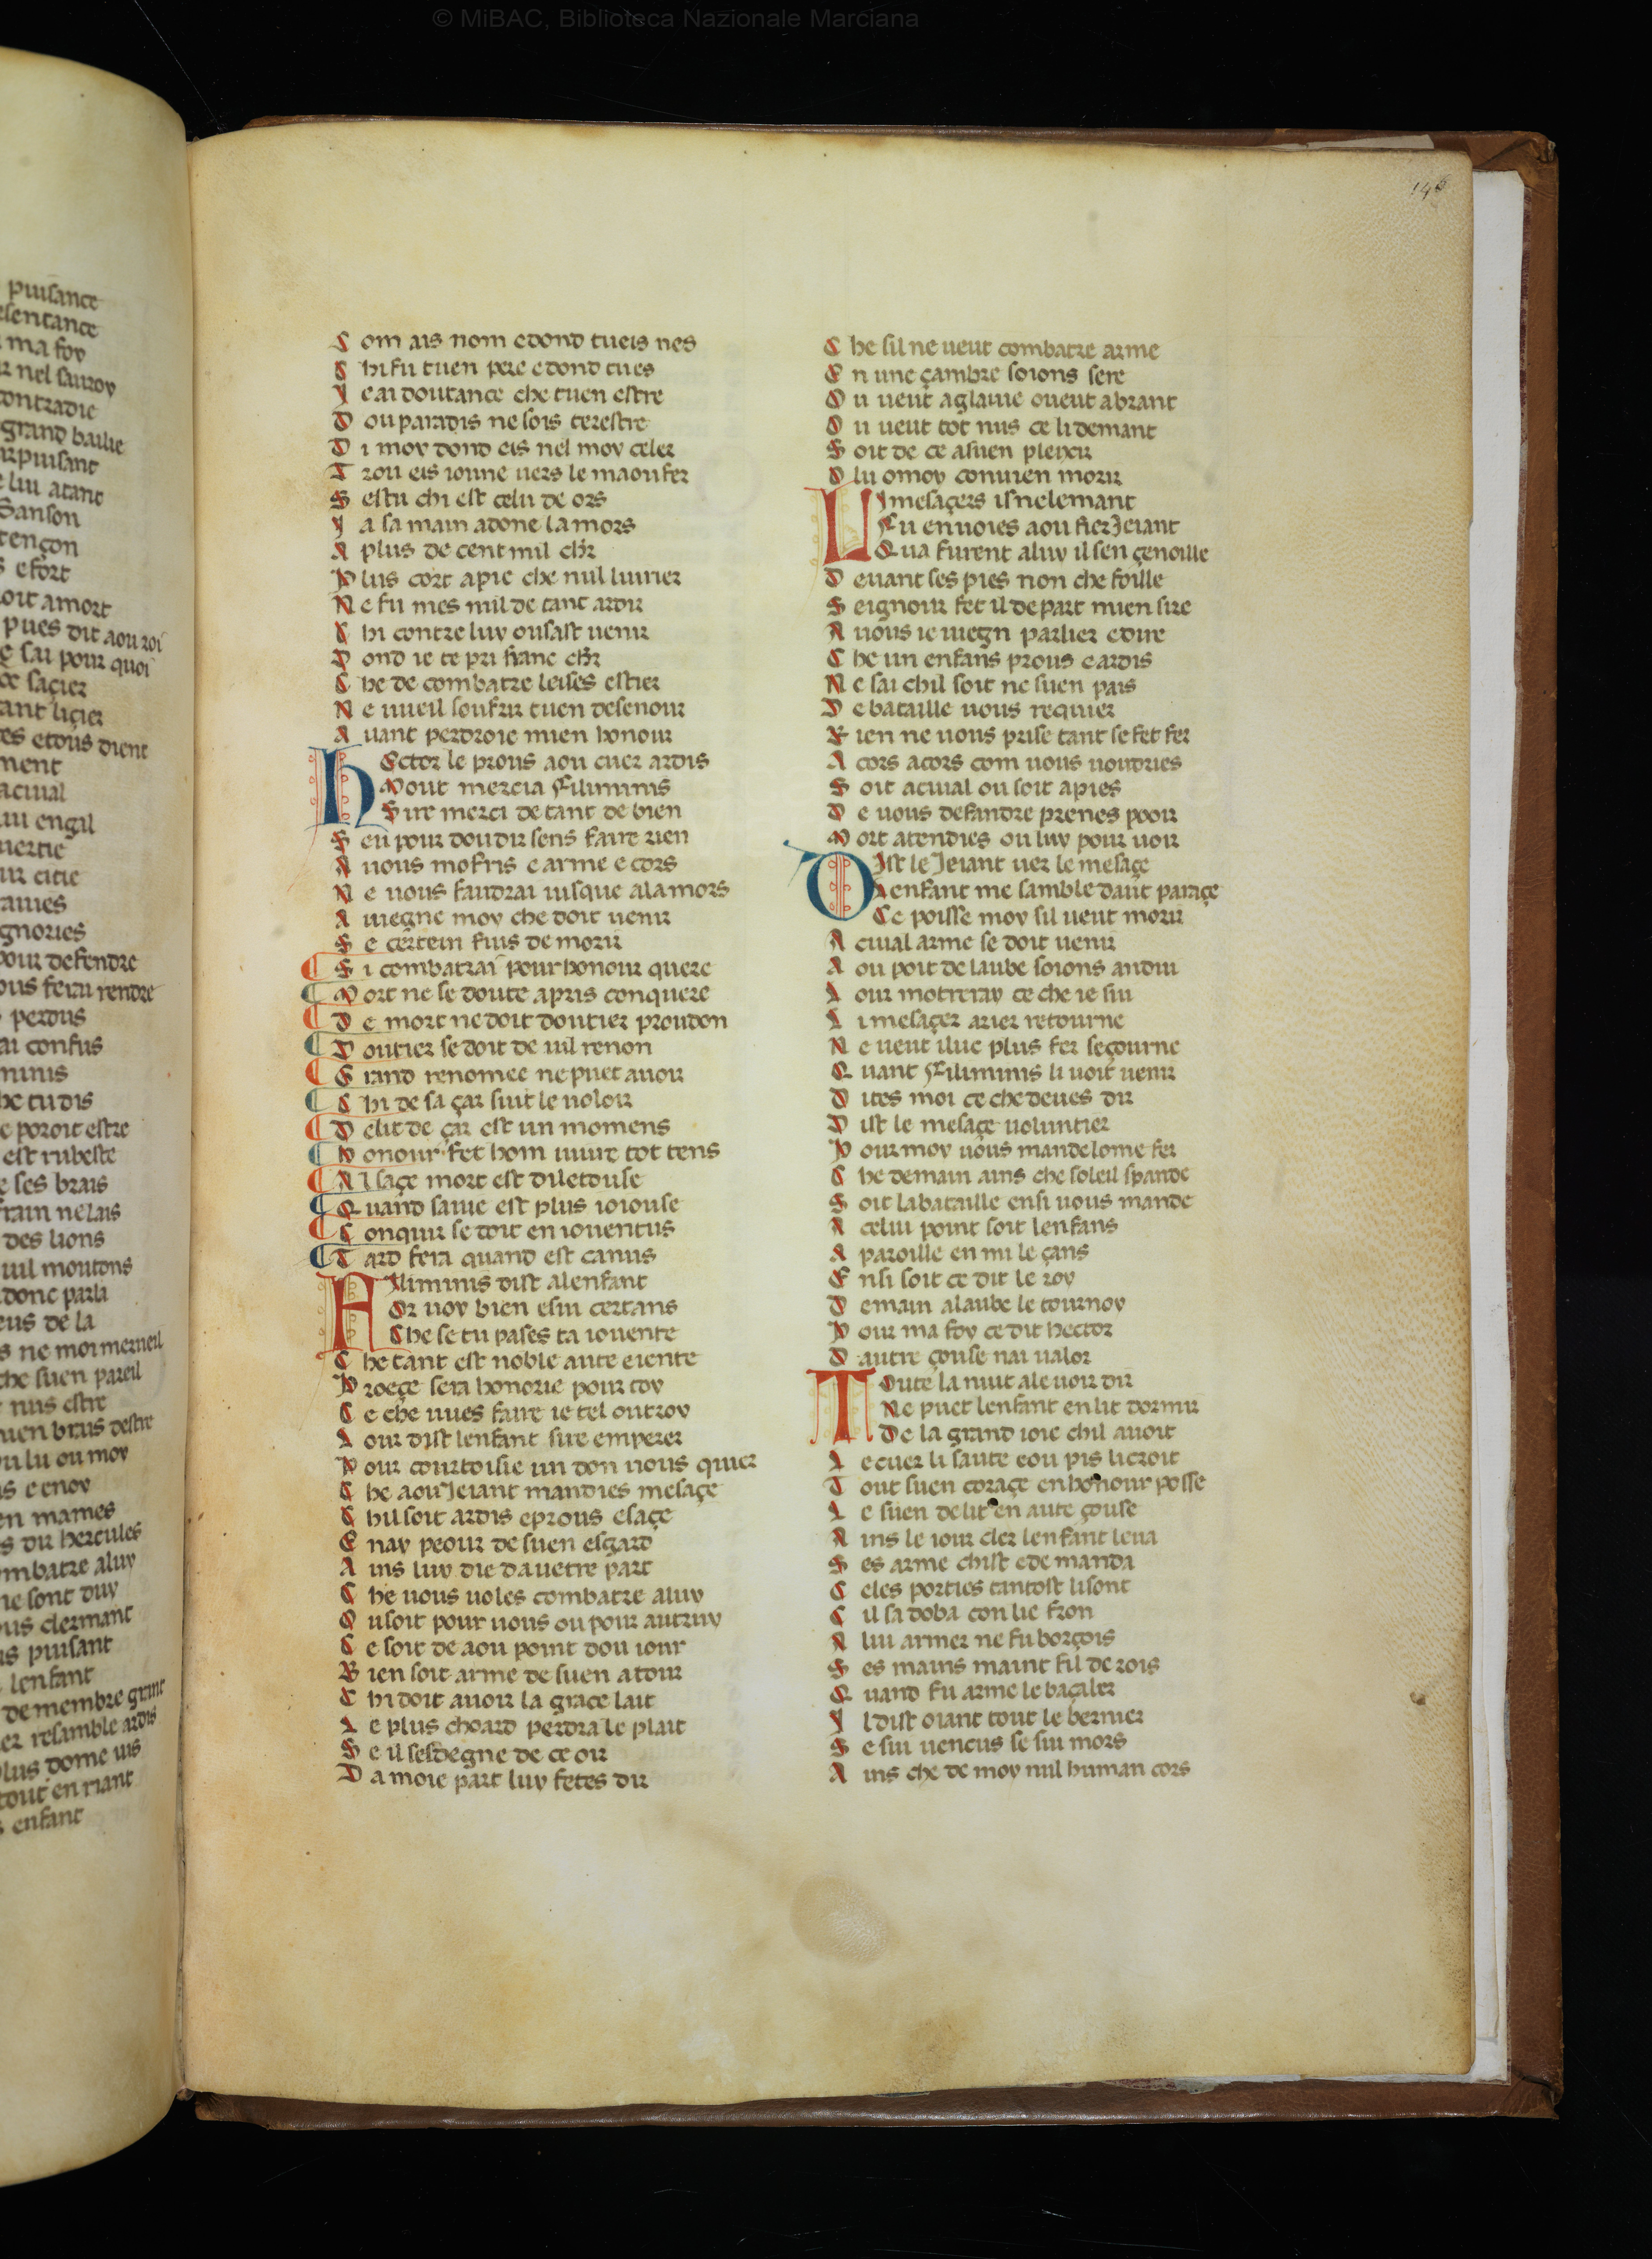 © MiBAC, Biblioteca Nazionale Marciana
146
puisance
esentance
ma foy
nel sauroy
contradie
grand bailie
puisant
luu atant
Sanson
tençon
efort
oit amort
pues dit aou roi
sai pour quoi
saçier
tant liçier
etous dient
ment
aciual
engal
citie
gnories
pour defendre
ferai rendre
perdus
confus
minis
he tu dis
poroit estre
est rubeste
ses brais
nelais
des lions
uil moutons
donc parla
de la
ne moi merueil
che suen pareil
nus estre
suen brus destre
lu ou moy
e enoy
mames
dir hercules
combatre aluy
ne sont duy
clermant
puisant
lenfant
de membre grant
resamble ardis
plus dome uis
tout en riant
enfant
C om ais nom edond tueis nes
C hi fu tuen pere edond tues
Y e ai doutance che tuen estre
D ou paradis ne sois terestre
D i moy dond eis nel moy celer
T rou eis ioune uers le maoufer
S estu chi est celu de ors
Y a sa main adone la mors
A plus de cent mil chr
P lus cort apie che nul luurier
N e fu mes mil de tant ardir
C hi contre luy ousast uenir
D ond ie te pri franc chr
C he de combatre leises estier
N e uueil soufrir tuen desenour
A uant perdroie mien honour
H Ector le prous aou cuer ardis
Mout mercia Filiminis
Sire merci de tant de bien
S en pour dou dir sens faire rien
A uous mofris e arme e cors
N e uous faudrai iusque ala mors
A uiegne moy che doit uenir
S e certein fuis de morir
S i combatrai pour honour quere
M ort ne se doute apris conquere
D e mort ne doit doutier proudon
D outier se doit de uil renon
G rand renomee ne puet auoir
C hi de sa çar suit le uoloir
D elit de çar est un momens
H onour fet hom uiure tot tens
A l saçe mort est diletouse
Q uand sauie est plus ioiouse
C onquir se doit en iouentus
T ard fera quand est canus
F Iliminis dist alenfant
Or uoy bien esui certans
Che se tu pases ta iouente
C he tant est noble aute eiente
P roeçe sera honorie pour toy
C e che uues faire ie tel outroy
L our dist lenfant sire emperer
P our courtoisie un don uous quier
C he aou Jeiant mandies mesaçe
C hil soit ardis e prous e saçe
E nay peour de suen esgard
A ins luy die da uetre part
C he uous uoles combatre aluy
O u soit pour uous ou pour autruy
C e soit de aou point dou iour
B ien soit arme de suen atour
C hi doit auoir la grace lait
L e plus choard perdra le plait
S e il sesdegne de ce oir
D a moie part luy fetes dir
C he sil ne ueut combatre arme
E n une çambre soions sere
O u ueut aglaiue oueut abrant
O u ueut tot nus ce li demant
S oit de ce asuen pleixir
O lu omoy conuien morir
L I mesaçers isnelemant
Fu enuoies aou fier Jeiant
Qua furent aluy il sen çenoille
D euant ses pies non che foille
S eignour fet il de part mien sire
A uous ie uiegn parlier e dire
C he un enfans prous e ardis
N e sai chil soit ne suen pais
D e bataille uous requier
R ien ne uous prise tant se fet fer
A cors acors com uous uoudries
S oit aciual ou soit apies
D e uous defandre prenes pooir
M ort atendies ou luy pour uoir
D Ist le Jeiant uer le mesaçe
L enfant me samble daut paraçe
Ce poisse moy sil ueut morir
A ciual arme se doit uenir
A ou poit de laube soions andui
L our motreray ce che ie sui
L i mesaçer arier retourne
N e ueut iluc plus fer seçourne
Q uant Filiminis li uoit uenir
D ites moi ce che deues dir
D ist le mesaçe uoluntier
P our moy uous mande lome fer
C he demain ains che soleil spande
S oit la bataille ensi uous mande
A celui point soit lenfans
A paroille en mi le çans
E nsi soit ce dit le roy
D emain alaube le tournoy
P our ma foy ce dit hector
D autre çouse nai ualor
T Oute la nuit ale uoir dir
Ne puet lenfant en lit dormir
De la grand ioie chil auoit
L e cuer li saute eou pis li croit
T out suen coraçe en honour posse
L e suen delit en aute çouse
A ins le iour cler lenfant leua
S es arme chist e demanda
C eles porties tantost li sont
C il sadoba con lie fron
A lui armer ne fu borçois
S es mains maint fil de rois
Q uand fu arme le baçaler
Y l dist oiant tout le bernier
S e sui uencus se sui mors
A ins che de moy nul human cors